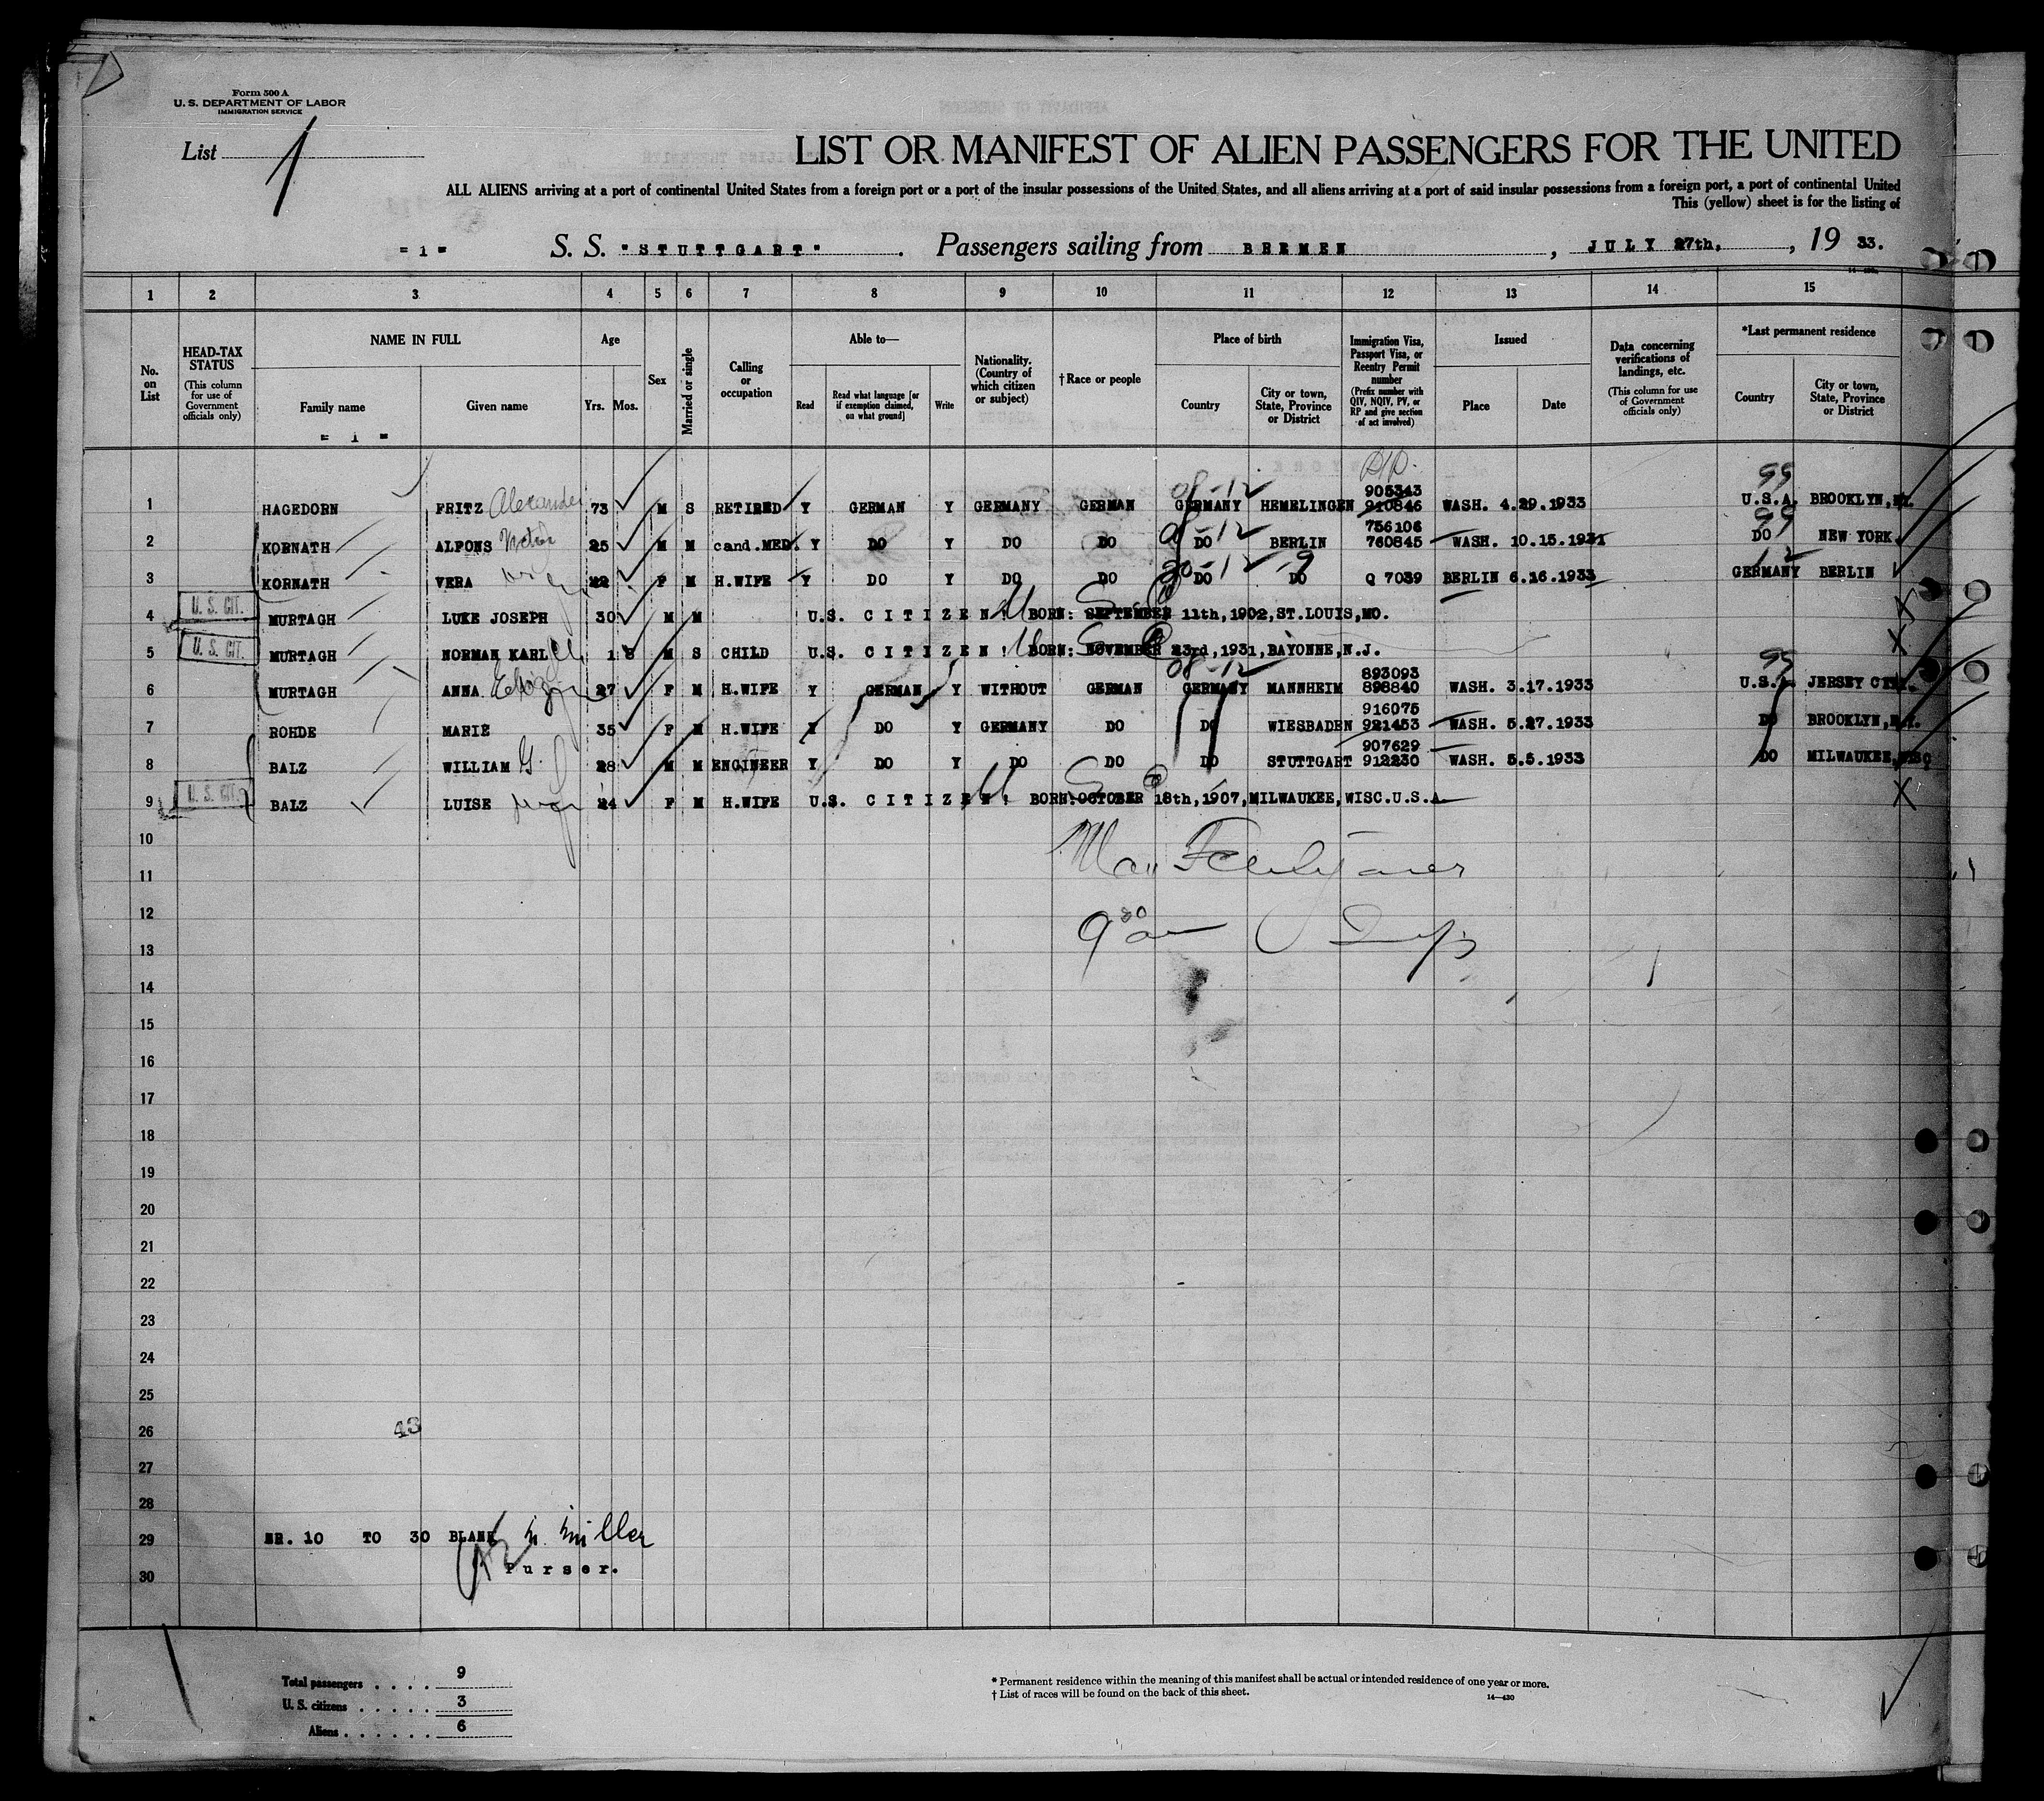 Form 500 A
U. S. DEPARTMENT OF LABOR
IMMIGRATION SERVICE
List 1
LIST OR MANIFEST OF ALIEN PASSENGERS FOR THE UNITED
ALL ALIENS arriving at a port of continental United States from a foreign port or a port of the insular possessions of the United States, and all aliens arriving at a port of said insular possessions from a foreign port, a port of continental United
This (yellow) sheet is for the listing of
= 1 = S. S. "STUTTGART". Passengers sailing from BREMEN, JULY 27th, , 19 33.
1 2 3 4 5 6 7 8 9 10 11 12 13 14 15
No. on List
HEAD-TAX STATUS (This column for use of Government officials only)
NAME IN FULL
Family name Given name
= 1 =
Age Yrs. Mos.
Sex
Married or single
Calling or occupation
Able to—
Read Read what language [or if exemption claimed, on what ground] Write
Nationality. (Country of which citizen or subject)
†Race or people
Place of birth
Country City or town, State, Province or District
Immigration Visa, Passport Visa, or Reentry Permit number (Prefix number with QIV, NQIV, PV, or RP and give section of act involved)
Issued
Place Date
Data concerning verifications of landings, etc. (This column for use of Government officials only)
*Last permanent residence
Country City or town, State, Province or District
08-12 905343 99
1 HAGEDORN FRITZ Alexander 73 M S RETIRED Y GERMAN Y GERMANY GERMAN GERMANY HEMELINGEN 910846 WASH. 4.29.1933 U.S.A. BROOKLYN, NY.
756106 99
2 KORNATH ALFONS 25 M M cand.MED. Y DO Y DO DO DO BERLIN 760845 WASH. 10.15.1931 DO NEW YORK
3 KORNATH VERA 22 F M H.WIFE Y DO Y DO DO DO DO Q 7039 BERLIN 6.16.1933 GERMANY BERLIN
U. S. CIT.
4 MURTAGH LUKE JOSEPH 30 M M U.S. CITIZEN! BORN: SEPTEMBER 11th,1902,ST.LOUIS,MO.
U. S. CIT.
5 MURTAGH NORMAN KARL 1 8 M S CHILD U.S. CITIZEN! BORN: NOVEMBER 23rd,1931,BAYONNE,N.J.
08-12 893093 99
6 MURTAGH ANNA 27 F M H.WIFE Y GERMAN Y WITHOUT GERMAN GERMANY MANNHEIM 898840 WASH. 3.17.1933 U.S.A. JERSEY CITY.
916075
7 ROHDE MARIE 35 F M H.WIFE Y DO Y GERMANY DO DO WIESBADEN 921453 WASH. 5.27.1933 DO BROOKLYN, N.Y.
907629
8 BALZ WILLIAM G. 28 M M ENGINEER Y DO Y DO DO DO STUTTGART 912230 WASH. 5.5.1933 DO MILWAUKEE, WISC
U. S. CIT.
9 BALZ LUISE 24 F M H.WIFE U.S. CITIZEN! BORN:OCTOBER 18th,1907,MILWAUKEE,WISC.U.S.A.
10
11
12
13
14
15
16
17
18
19
20
21
22
23
24
25
26 43
27
28
29 NR. 10 TO 30 BLANK Miller
Purser.
30
Total passengers . . . . 9
U. S. citizens . . . . . 3
Aliens . . . . . . 6
* Permanent residence within the meaning of this manifest shall be actual or intended residence of one year or more.
† List of races will be found on the back of this sheet.
14—430